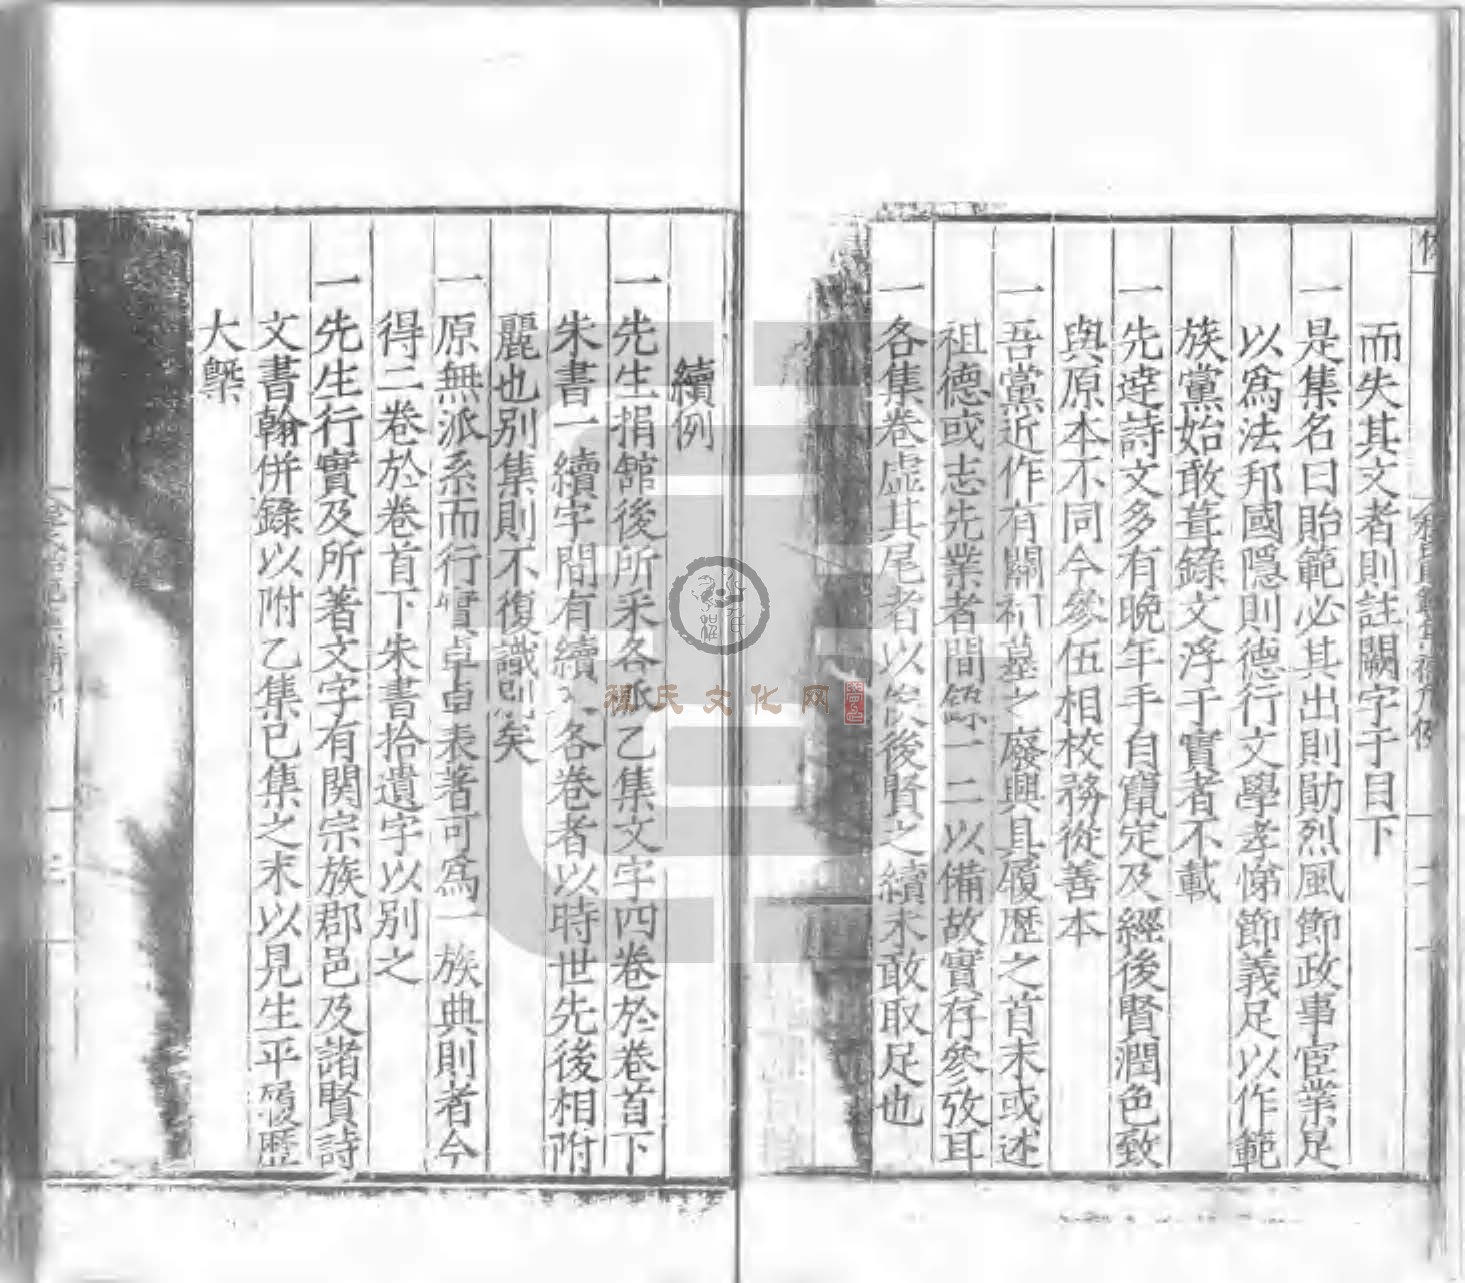 而失其文者則註闕字于目下
一是集名曰貽範必其出則勛烈風節政事宦業足
以爲法邦國隱則德行文學孝悌節義足以作範
族黨始敢葺錄文浮于實者不載
一先達詩文多有晚年手自竄定及經後賢潤色致
與原本不同今參伍相校務從善本
一吾黨近作有關祠墓之廢興具履歷之首末或述
祖德或志先業者間錄一二以備故實存參攷耳
一各集卷虛其尾者以俟後賢之續未敢取足也
續例
一先生捐舘後所采各派乙集文字四卷於卷首下
朱書一續字間有續入各卷者以時世先後相附
麗也别集則不復識別矣
一原無派系而行實卓卓表著可爲一族典則者今
得二卷於卷首下朱書拾遺字以别之
一先生行實及所著文字有関宗族郡邑及諸賢詩
文書翰併錄以附乙集已集之末以見生平履歷
大槩
程氏文化网